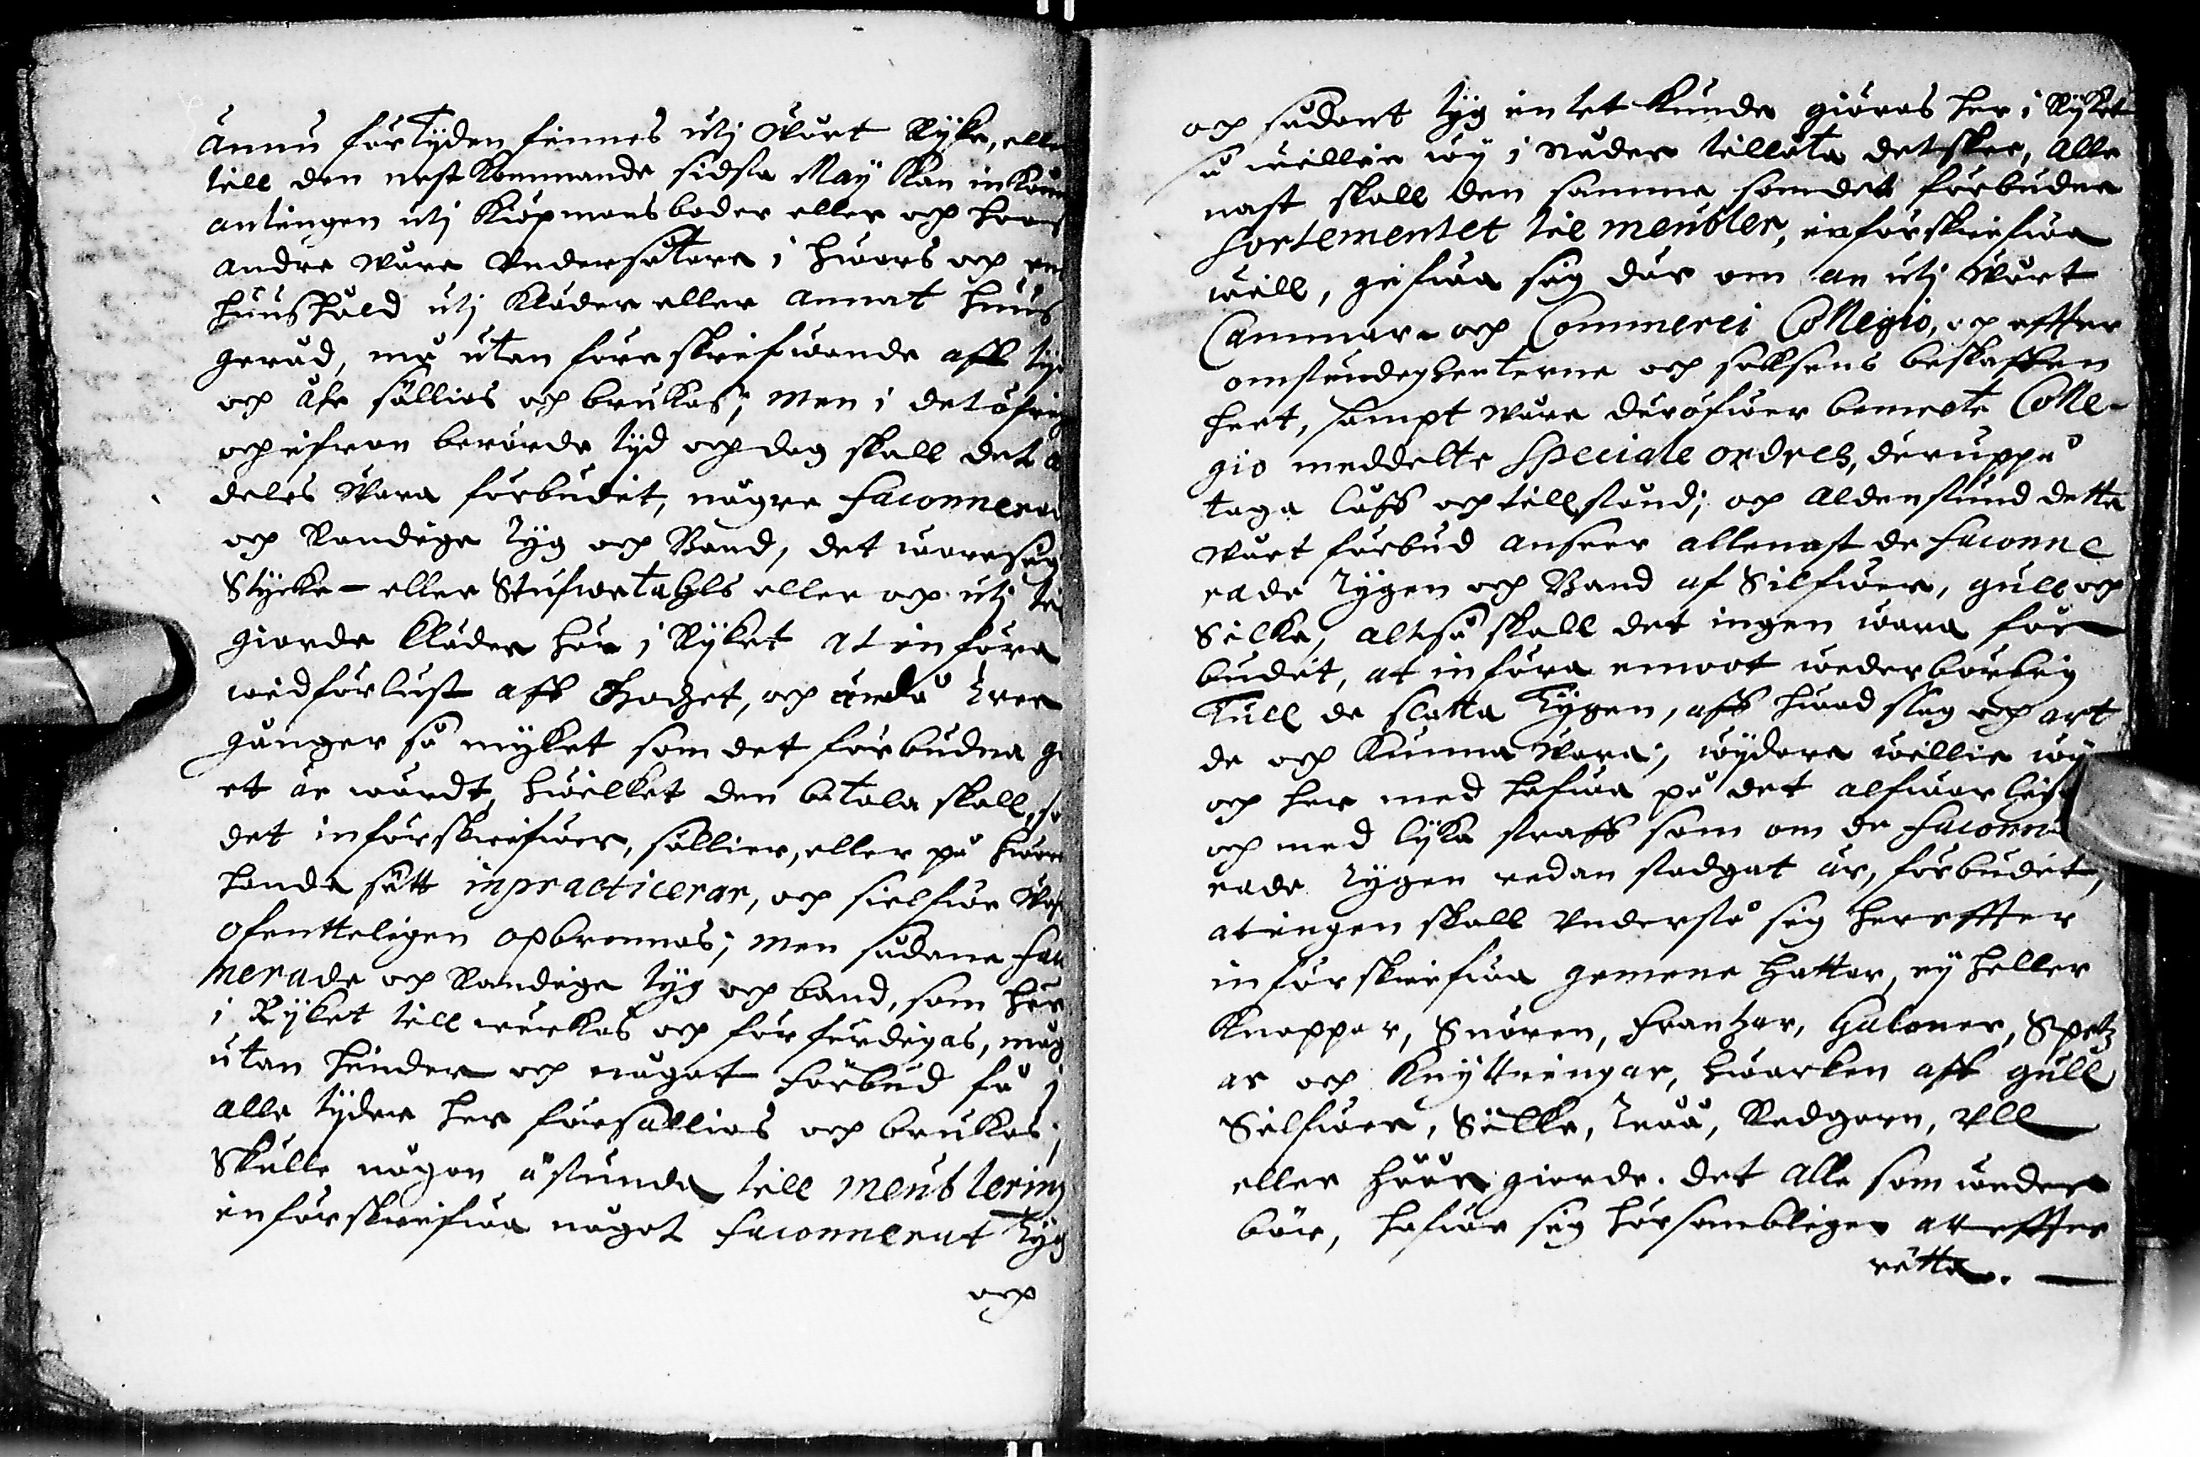 ännu förtyden finnes utj Wårt Rijke, eller
till den nest kommande sidsta Maij kan inkom
antingen utj Kiöpmansboder eller och hoos
andre Wåre Undersåtare i Hwars och ens
huushåld utj Kläder eller annat huus
geråd, må utan föreskrifwande aff tijd
och åhr sällias och brukas; Men i det öfrig
och ifrån berörde tijd och dag skall det a
deles Wara förbudit, någre faconnerad
och Randige Tyg och Band, det ware sig
Stycke- eller Stufwetahls eller och utj til
giorde kläder här i Rijket at införa
widförlust aff Godzet, och ändå tree
gånger så myket som det förbudna go
et är wärdt, hwilket den betala skall, so
det införskrifwer, sällier, eller på hwar
handa sätt inpracticerar, och sielfwe Wah
ofentteligen opbrennas; Men sådane fac
nerade och Randige tyg och band, som här
i Rijket till werkas och förfärdigas, måg
utan hinder och något förbud få i
alle tijder her försällias och brukas;
Skulle någon åstunda till meublering
införskrifwa något faconnerat Tyg
och
och sådant tyg intet kunde giöras her i Rijket
så wellie wij i Nåder tillåta det skee, Alle
nast skall den samme som det förbudne
sortementet til meubler, införskrifwa
will, gifwa sig der om an utj Wårt
Cammar- och Commerci Collegio, och effter
omständigheeterne och saksens beskaffen
heet, sampt Wåre deröfwer bemelte Colle-
gio meddelte Speciale ordres, deruppå
taga låff och tillstånd; och aldenstund detta
Wårt förbud anseer allenast de faconne
rade Tygen och Band af Silfwer, gull och
Silke, altså skall det ingen wara för-
budit, at införa emoot wederbörlig
Tull de slätta Tygen, aff hwad slag och art
de och kunna Wara; wijdare wellie wij
och her med hafwa på det alfwarlig
och med lijka straff som om de faconne
rade Tygen redan stadgat är, förbudit,
at ingen skall understå sig hereffter
införskrifwa gemene Hattar, eij heller
Knappar, Snören, Frantzar, Galoner, Spetz
ar och Knyttningar, hwarken aff gull
Silfwer, Silke, Tråå, Redgarn, Ull
eller håår giorde. det Alle som weder
bör, hafwe sig hörsambligen att effter
rätta.